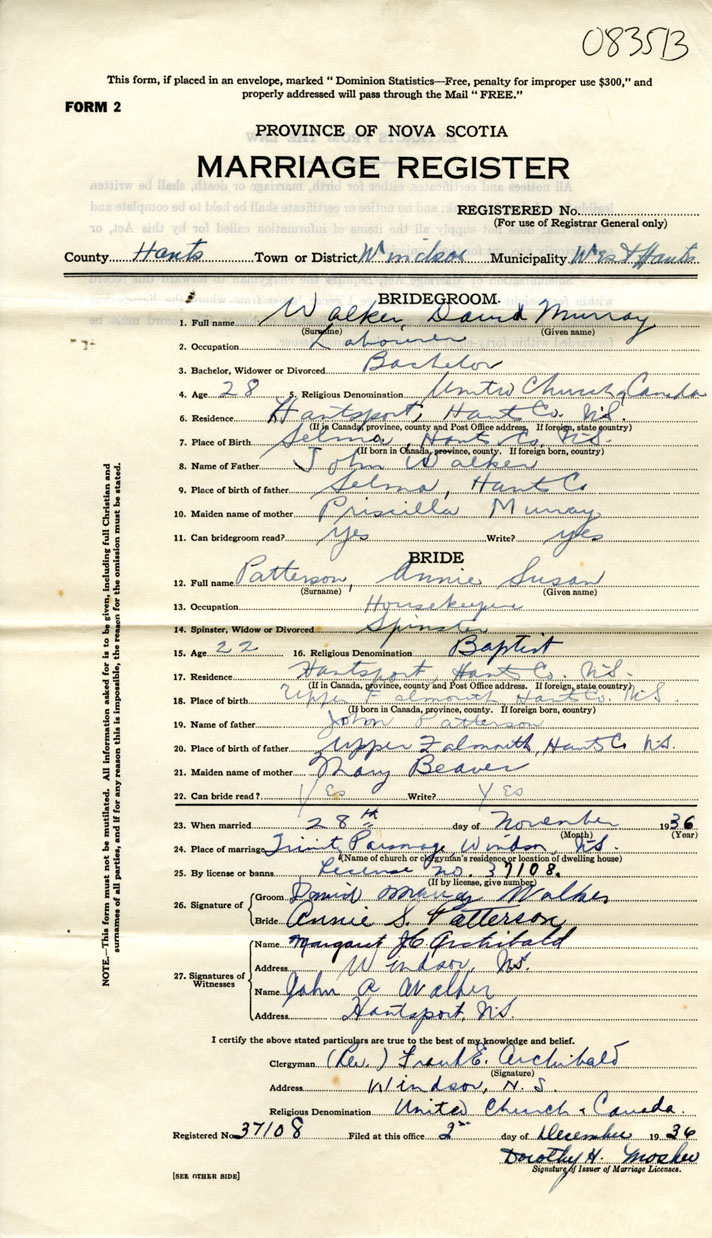 083513
This form, if placed in an envelope, marked “ Dominion Statistics—Free, penalty for improper use $300,” and
properly addressed will pass through the Mail “ FREE.”
FORM 2
PROVINCE OF NOVA SCOTIA
MARRIAGE REGISTER
REGISTERED No.
(For use of Registrar General only)
County Hants Town or District Windsor Municipality West Hants
BRIDEGROOM.
1. Full name Walker, David Murray
(Surname) (Given name)
2. Occupation Labourer
3. Bachelor, Widower or Divorced Bachelor
4. Age 28 5. Religious Denomination United Church of Canada
6. Residence Hantsport, Hants Co. N.S.
(If in Canada, province, county and Post Office address. If foreign, state country)
7. Place of Birth Selma, Hants Co. N.S.
(If born in Canada, province, county. If foreign born, country)
8. Name of Father John Walker
9. Place of birth of father Selma, Hants Co
10. Maiden name of mother Priscilla Murray
11. Can bridegroom read? Yes Write? yes
BRIDE
12. Full name Patterson, Annie Susan
(Surname) (Given name)
13. Occupation Housekeeper
14. Spinster, Widow or Divorced Spinster
15. Age 22 16. Religious Denomination Baptist
17. Residence Hantsport, Hants Co. N.S.
(If in Canada, province, county and Post Office address. If foreign, state country)
18. Place of birth Upper Falmouth, Hants Co. N.S.
(If born in Canada, province, county. If foreign born, country)
19. Name of father John Patterson
20. Place of birth of father Upper Falmouth, Hants Co N.S.
21. Maiden name of mother Mary Beaver
22. Can bride read? Yes Write? Yes
23. When married 28th day of November 1936
(Month) (Year)
24. Place of marriage Trinity Parsonage, Windsor, N.S.
(Name of church or clergyman's residence or location of dwelling house)
25. By license or banns License no. 37108.
(If by license, give number)
26. Signature of Groom David Murray Walker
Bride Annie S. Patterson
27. Signatures of Witnesses
Name Margaret Archibald
Address Windsor, N.S.
Name John A Walker
Address Hantsport, N.S.
I certify the above stated particulars are true to the best of my knowledge and belief.
Clergyman (Rev.) Frank E. Archibald
(Signature)
Address Windsor, N.S.
Religious Denomination United Church of Canada.
Registered No. 37108 Filed at this office 2nd day of December 1936
Dorothy H. Mosher
Signature of Issuer of Marriage Licenses.
[SEE OTHER SIDE]
NOTE.—This form must not be mutilated. All information asked for is to be given, including full Christian and
surnames of all parties, and if for any reason this is impossible, the reason for the omission must be stated.